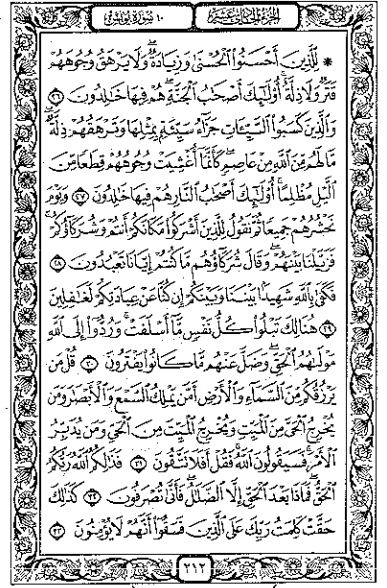 الجزء الحادي عشر
١٠ سورة يونس
* لِّلَّذِينَ أَحْسَنُوا۟ ٱلْحُسْنَىٰ وَزِيَادَةٌ ۖ وَلَا يَرْهَقُ وُجُوهَهُمْ
قَتَرٌ وَلَا ذِلَّةٌ ۚ أُو۟لَٰٓئِكَ أَصْحَٰبُ ٱلْجَنَّةِ ۖ هُمْ فِيهَا خَٰلِدُونَ ٢٦
وَٱلَّذِينَ كَسَبُوا۟ ٱلسَّيِّـَٔاتِ جَزَآءُ سَيِّئَةٍۭ بِمِثْلِهَا وَتَرْهَقُهُمْ ذِلَّةٌ ۖ
مَّا لَهُم مِّنَ ٱللَّهِ مِنْ عَاصِمٍ ۖ كَأَنَّمَآ أُغْشِيَتْ وُجُوهُهُمْ قِطَعًا مِّنَ
ٱلَّيْلِ مُظْلِمًا ۚ أُو۟لَٰٓئِكَ أَصْحَٰبُ ٱلنَّارِ ۖ هُمْ فِيهَا خَٰلِدُونَ ٢٧ وَيَوْمَ
نَحْشُرُهُمْ جَمِيعًا ثُمَّ نَقُولُ لِلَّذِينَ أَشْرَكُوا۟ مَكَانَكُمْ أَنتُمْ وَشُرَكَآؤُكُمْ ۚ
فَزَيَّلْنَا بَيْنَهُمْ ۖ وَقَالَ شُرَكَآؤُهُم مَّا كُنتُمْ إِيَّانَا تَعْبُدُونَ ٢٨
فَكَفَىٰ بِٱللَّهِ شَهِيدًۢا بَيْنَنَا وَبَيْنَكُمْ إِن كُنَّا عَنْ عِبَادَتِكُمْ لَغَٰفِلِينَ
٢٩ هُنَالِكَ تَبْلُوا۟ كُلُّ نَفْسٍ مَّآ أَسْلَفَتْ ۚ وَرُدُّوٓا۟ إِلَى ٱللَّهِ
مَوْلَىٰهُمُ ٱلْحَقِّ ۖ وَضَلَّ عَنْهُم مَّا كَانُوا۟ يَفْتَرُونَ ٣٠ قُلْ مَن
يَرْزُقُكُم مِّنَ ٱلسَّمَآءِ وَٱلْأَرْضِ أَمَّن يَمْلِكُ ٱلسَّمْعَ وَٱلْأَبْصَٰرَ وَمَن
يُخْرِجُ ٱلْحَىَّ مِنَ ٱلْمَيِّتِ وَيُخْرِجُ ٱلْمَيِّتَ مِنَ ٱلْحَىِّ وَمَن يُدَبِّرُ
ٱلْأَمْرَ ۚ فَسَيَقُولُونَ ٱللَّهُ ۚ فَقُلْ أَفَلَا تَتَّقُونَ ٣١ فَذَٰلِكُمُ ٱللَّهُ رَبُّكُمُ
ٱلْحَقُّ ۖ فَمَاذَا بَعْدَ ٱلْحَقِّ إِلَّا ٱلضَّلَٰلُ ۖ فَأَنَّىٰ تُصْرَفُونَ ٣٢ كَذَٰلِكَ
حَقَّتْ كَلِمَتُ رَبِّكَ عَلَى ٱلَّذِينَ فَسَقُوٓا۟ أَنَّهُمْ لَا يُؤْمِنُونَ ٣٣
٢١٢